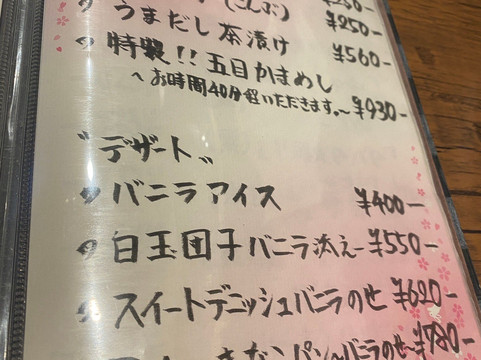 (こんぶ) ¥250
うまだし茶漬け ¥250
特製!!五目かまめし ¥560-
〜お時間40分程いただきます。〜¥930-
〝デザート〟
バニラアイス ¥400-
白玉団子バニラ添え-¥550-
スイートデニッシュバニラのせ ¥620-
きなこパンバニラのせ〜¥780-